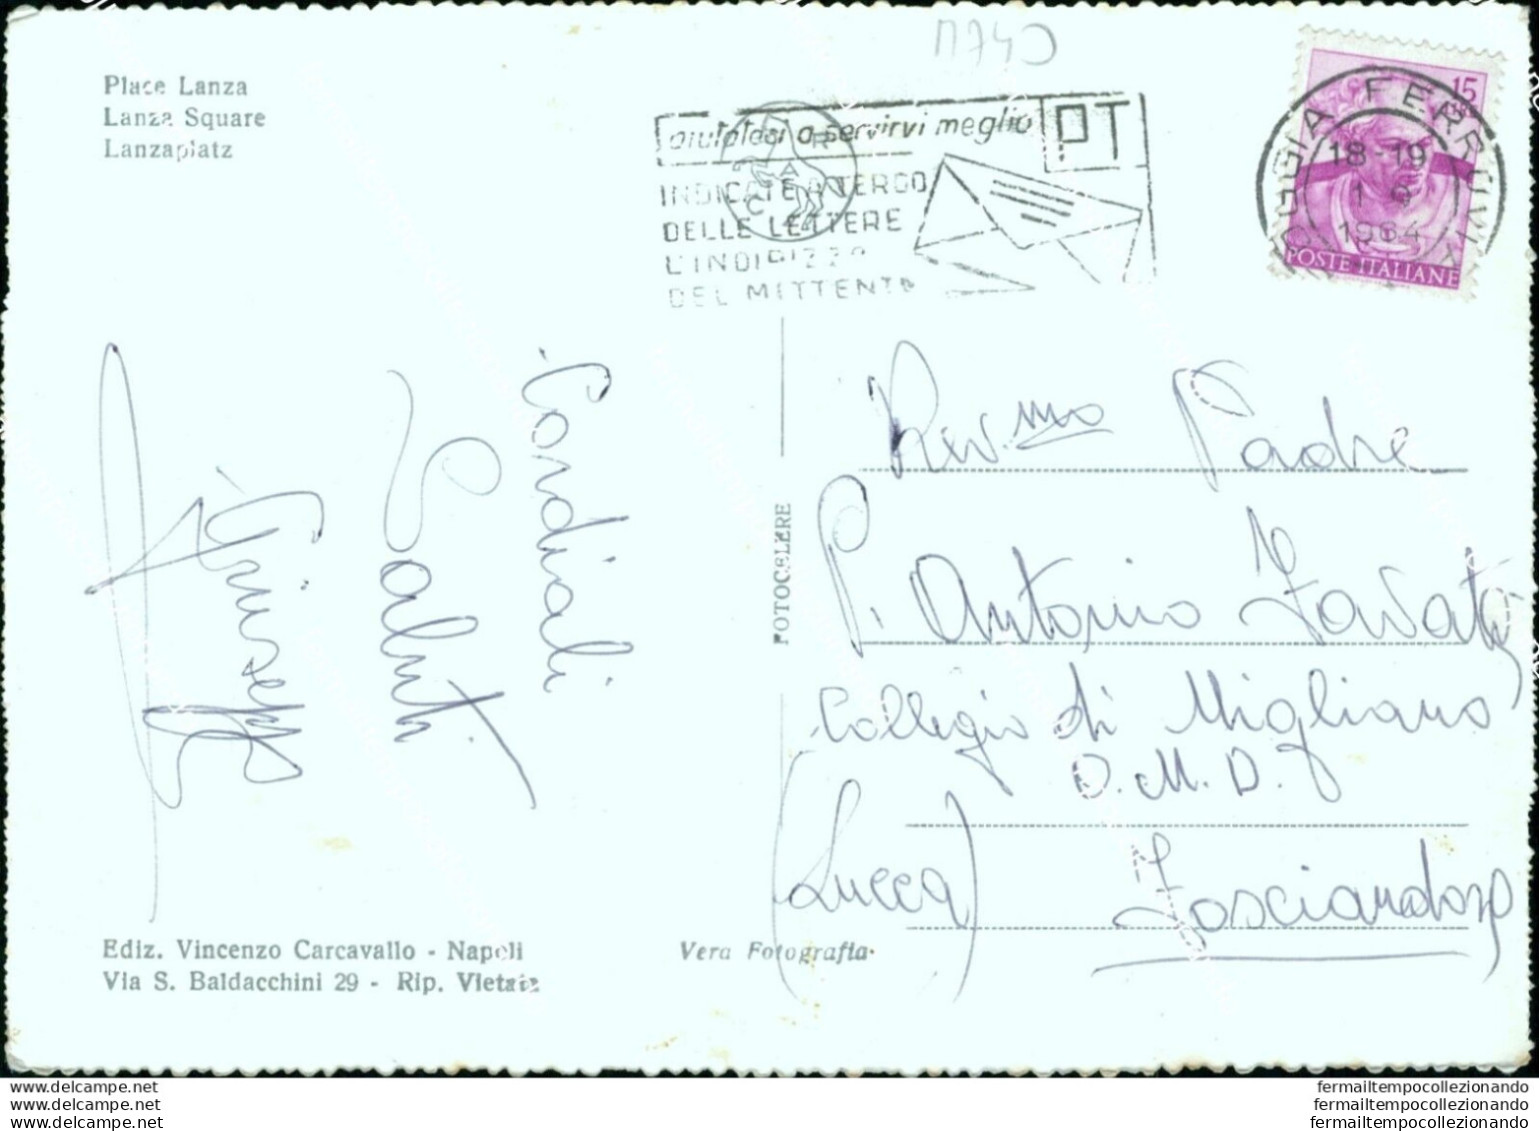 Place Lanza
Lanza Square
Lanzaplatz
M740
aiutateci a servirvi meglio
PT
INDICATE A TERGO
DELLE LETTERE
L'INDIRIZZO
DEL MITTENTE
FOGGIA FERROVIA
18-19
1 9
1964
15
POSTE ITALIANE
Cordiali
Saluti
Giuseppe
FOTOCELERE
Rev.mo Padre
P. Antonio
Collegio di Migliano
O.M.D.
(Lucca) Fosciandora
Ediz. Vincenzo Carcavallo - Napoli
Via S. Baldacchini 29 - Rip. Vietata
Vera Fotografia
www.delcampe.net
www.delcampe.net
www.delcampe.net
fermailtempocollezionando
fermailtempocollezionando
fermailtempocollezionando